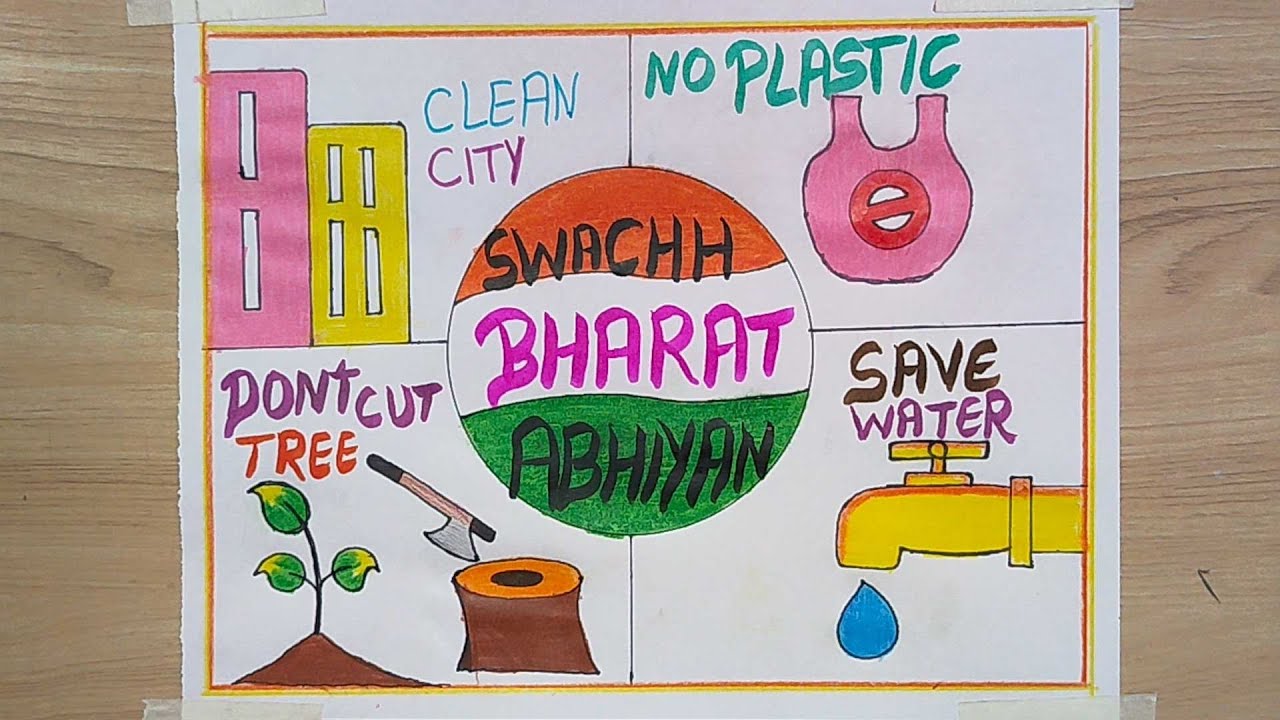 CLEAN
CITY
NO PLASTIC
SWACHH
BHARAT
ABHIYAN
DONT CUT
TREE
SAVE
WATER